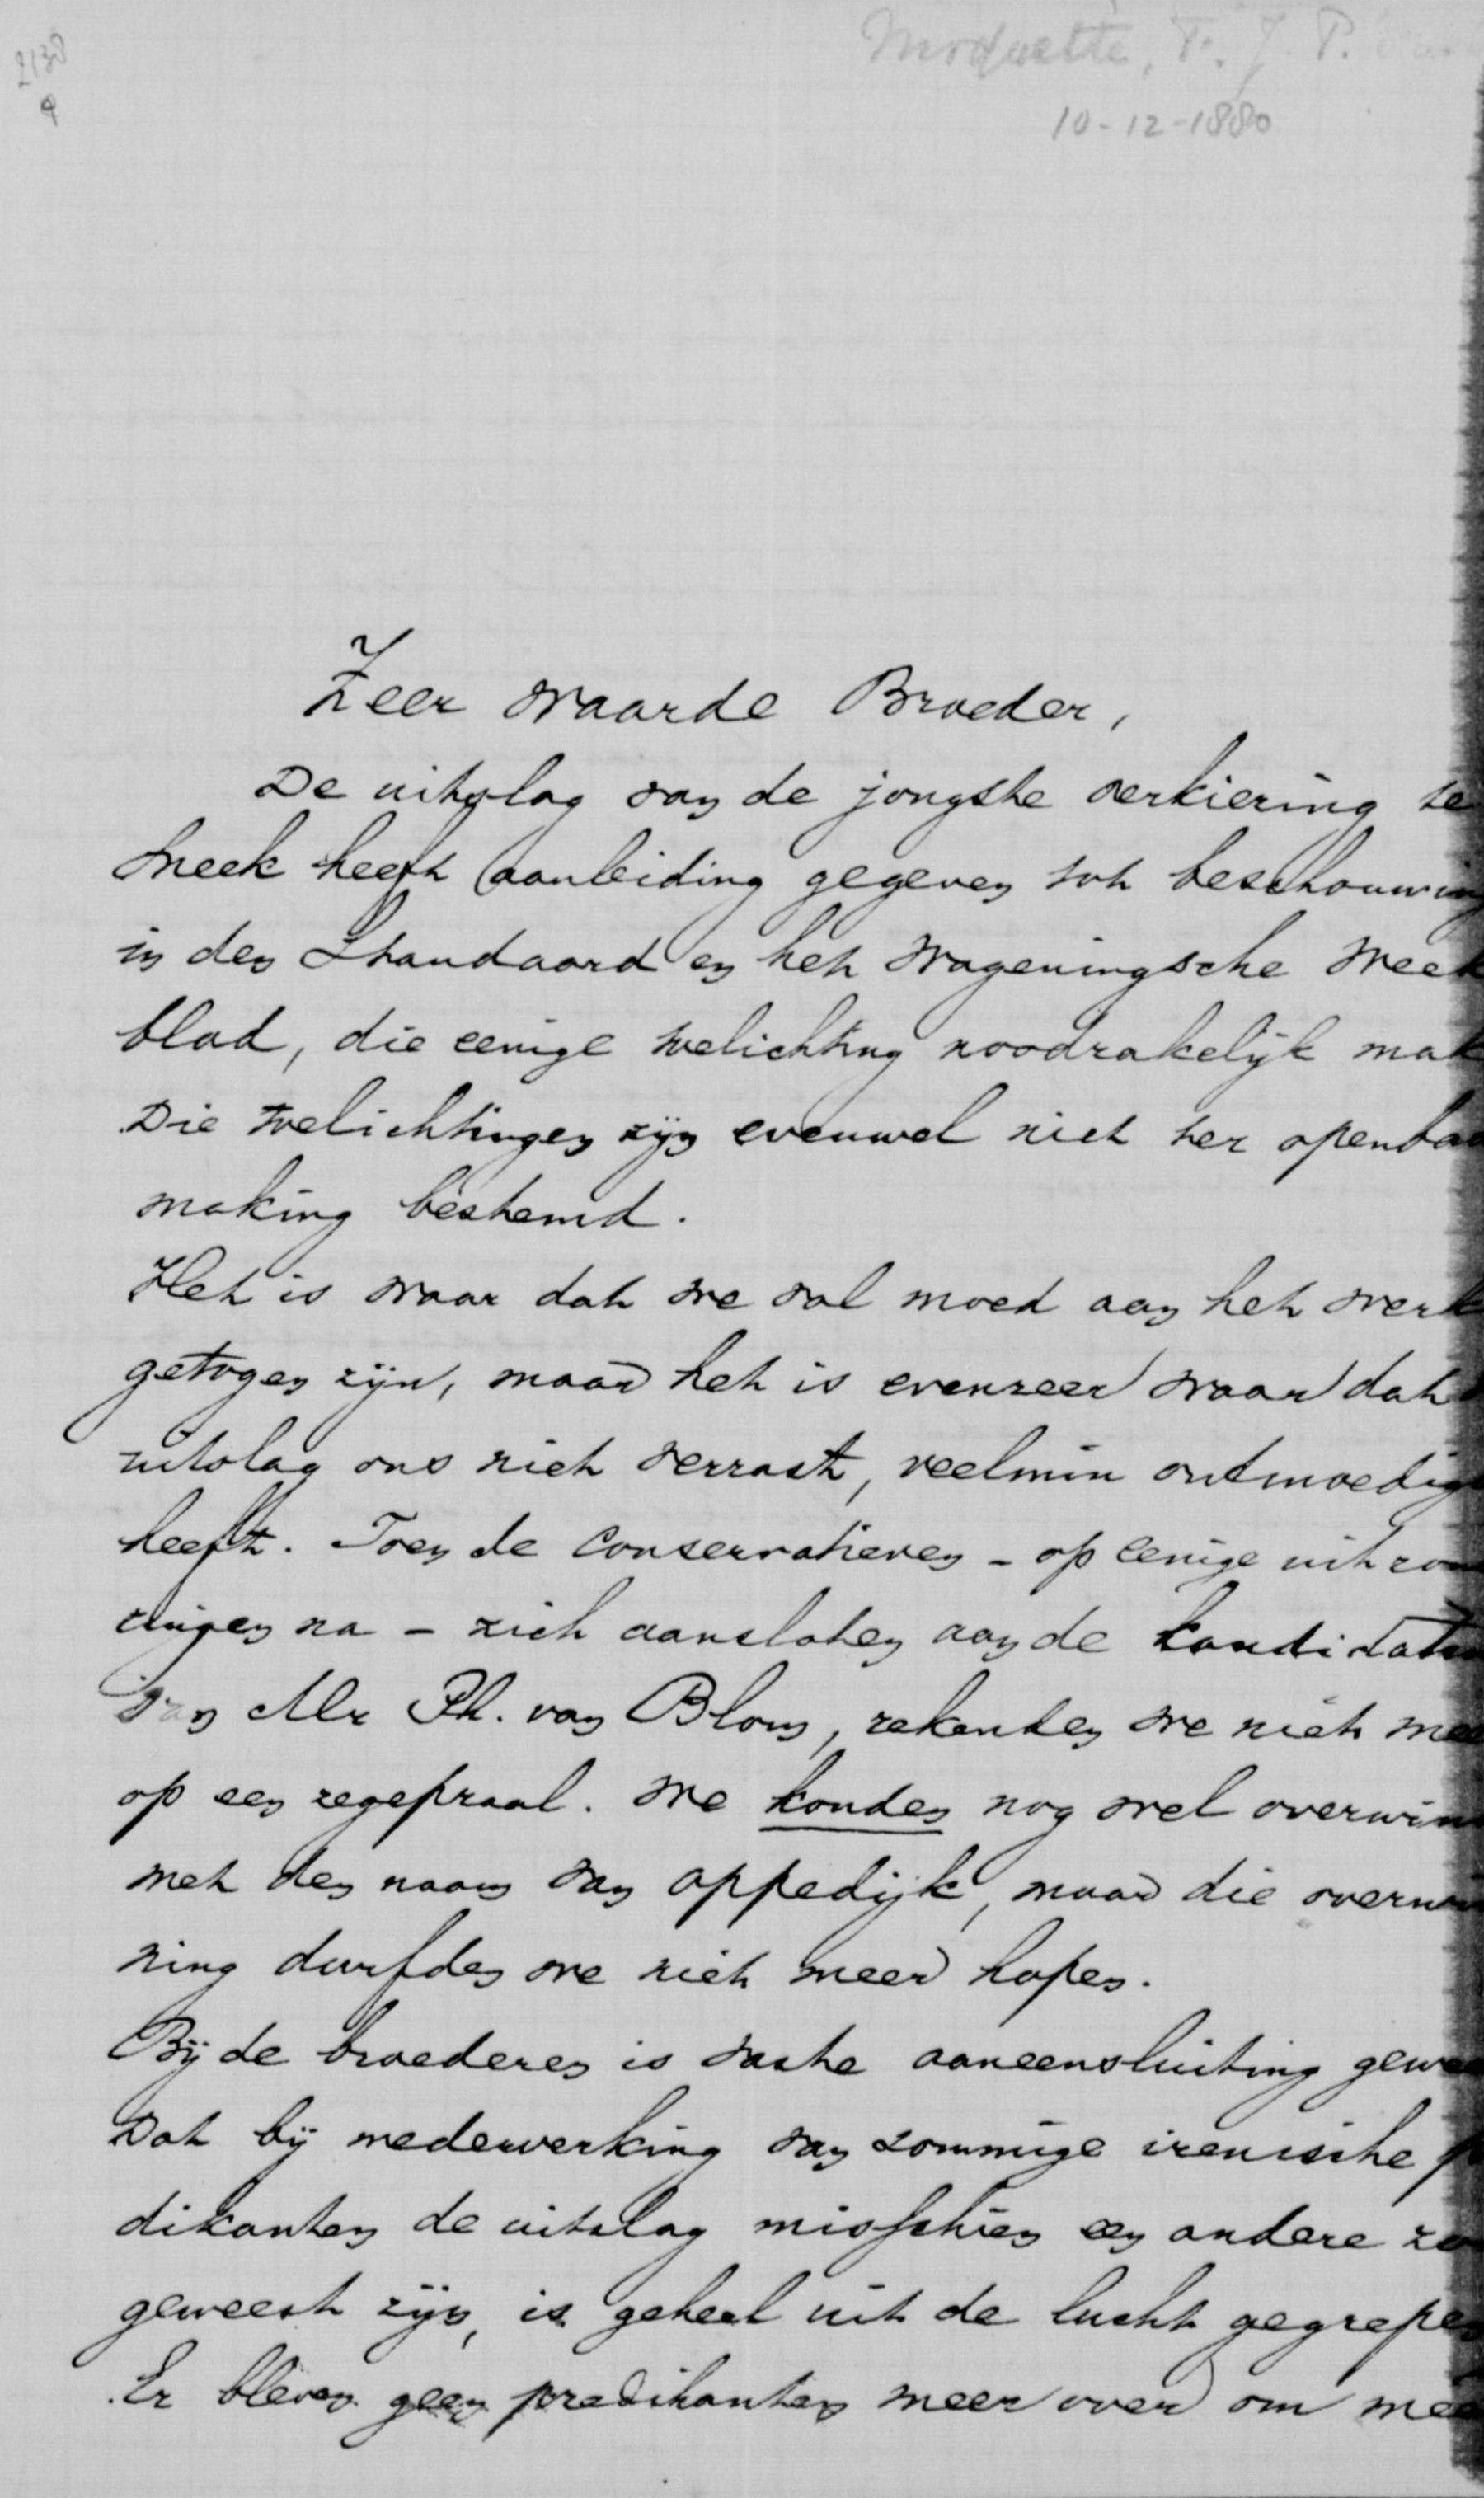 2138
Moquette, F. J. P.
10-12-1880
Zeer waarde Broeder,
De uitslag van de jongste verkiezing te
Sneek heeft aanleiding gegeven tot beschouwing
in den Standaard en het Wageningsche Week
blad, die eenige toelichting noodzakelijk mak
Die toelichtingen zijn evenwel niet ter openba
making bestemd.
Het is waar dat we vol moed aan het werk
getogen zijn, maar het is evenzeer waar dat
uitslag ons niet verrast, veelmin ontmoedig
heeft. Toen de Conservatieven - op eenige uitzon
ringen na - zich aansloten aan de kandidatu
van Mr Ph. van Blom, rekenden we niet mee
op een zegepraal. We konden nog wel overwin
met den naam van Oppedijk, maar die overwi
ning durfden we niet meer hopen.
Bij de broederen is vaste aaneensluiting gewee
Dat bij medewerking van sommige irenische p
dikanten de uitslag misschien een andere zo
geweest zijn, is geheel uit de lucht gegrepen
Er bleven geen predikanten meer over om mee